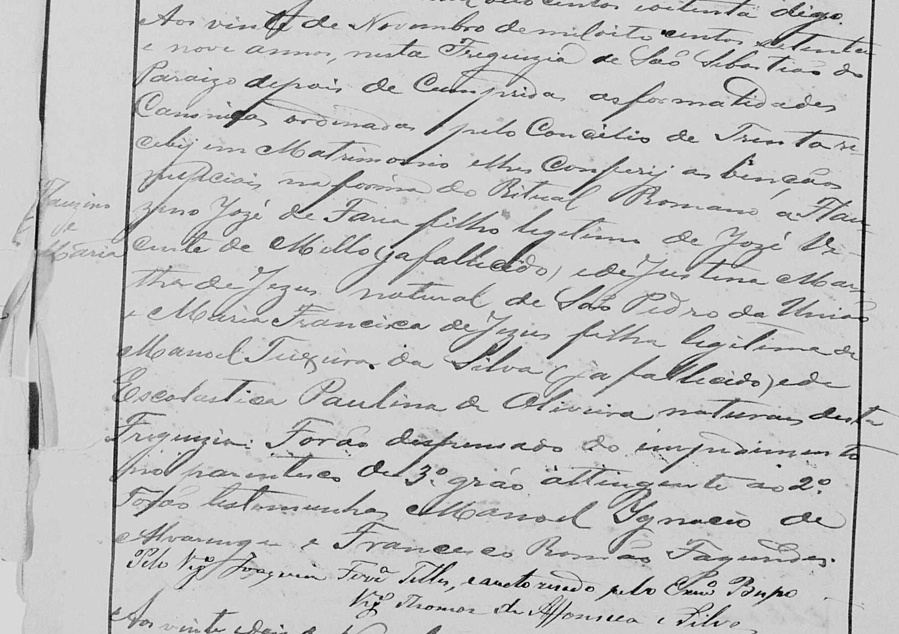 oito centos e oitenta digo
Aos vinte de Novembro de mil oito centos setenta
e nove annos, nesta Freguezia de São Sebastião do
Paraizo depois de Cumpridas as formalidades
Canonicas ordenadas pelo Concilio de Trento re-
cebij em Matrimonio e lhes Conferij as bençãos
nupciais na forma do Ritual Romano, a Flau-
zino Jozé de Faria filho legitimo de Jozé Vi-
cente de Mello (ja fallecido) e de Justina Mar-
tha de Jezus natural de São Pedro da União
e Maria Francisca de Jezus filha legitima de
Manoel Teixeira da Silva (ja fallecido) e de
Escolastica Paulina de Oliveira natural desta
Freguezia. Forão despensado do impedimento
no parintesco de 3º gráo attingente ao 2º.
Forão testemunhas Manoel Ygnacio de
Alvarenga e Francisco Romão Fagundes.
Pelo Vigº Joaquim Ferrª Telles, e autorizado pelo Exmº Bispo
Vigº Thomaz de Affonseca e Silva
Aos vinte dois de
Flauzino
e
Maria